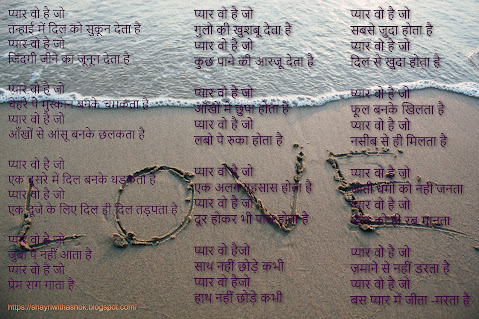 प्यार वो है जो
तन्हाई में दिल को सुकून देता है
प्यार वो है जो
जिंदगी जीने का जूनून देता है
प्यार वो है जो
चेहरे पे मुस्कान बनके चमकता है
प्यार वो है जो
आँखों से आंसू बनके छलकता है
प्यार वो है जो
एक दूसरे में दिल बनके धड़कता है
प्यार वो है जो
एक दूजे के लिए दिल ही दिल तड़पता है
प्यार वो है जो
जुबां पे नहीं आता है
प्यार वो है जो
प्रेम राग गाता है
प्यार वो है जो
गुलों की खुशबू देता है
प्यार वो है जो
कुछ पाने की आरजू देता है
प्यार वो है जो
आँखों में छुपा होता है
प्यार वो है जो
लबो पे रुका होता है
प्यार वो है जो
एक अलग एहसास होता है
प्यार वो है जो
दूर होकर भी पास होता है
प्यार वो हैजो
साथ नहीं छोड़े कभी
प्यार वो हैजो
हाथ नहीं छोड़े कभी
प्यार वो है जो
सबसे जुदा होता है
प्यार वो है जो
दिल से खुदा होता है
प्यार वो है जो
फूल बनके खिलता है
प्यार वो है जो
नसीब से ही मिलता है
प्यार वो है जो
धर्मों को नहीं जनता
प्यार वो है जो
ही रब मानता
प्यार वो है जो
ज़माने से नहीं डरता है
प्यार वो है जो
बस प्यार में जीता -मरता है
LOVE
https://shayriwithashok.blogspot.com/